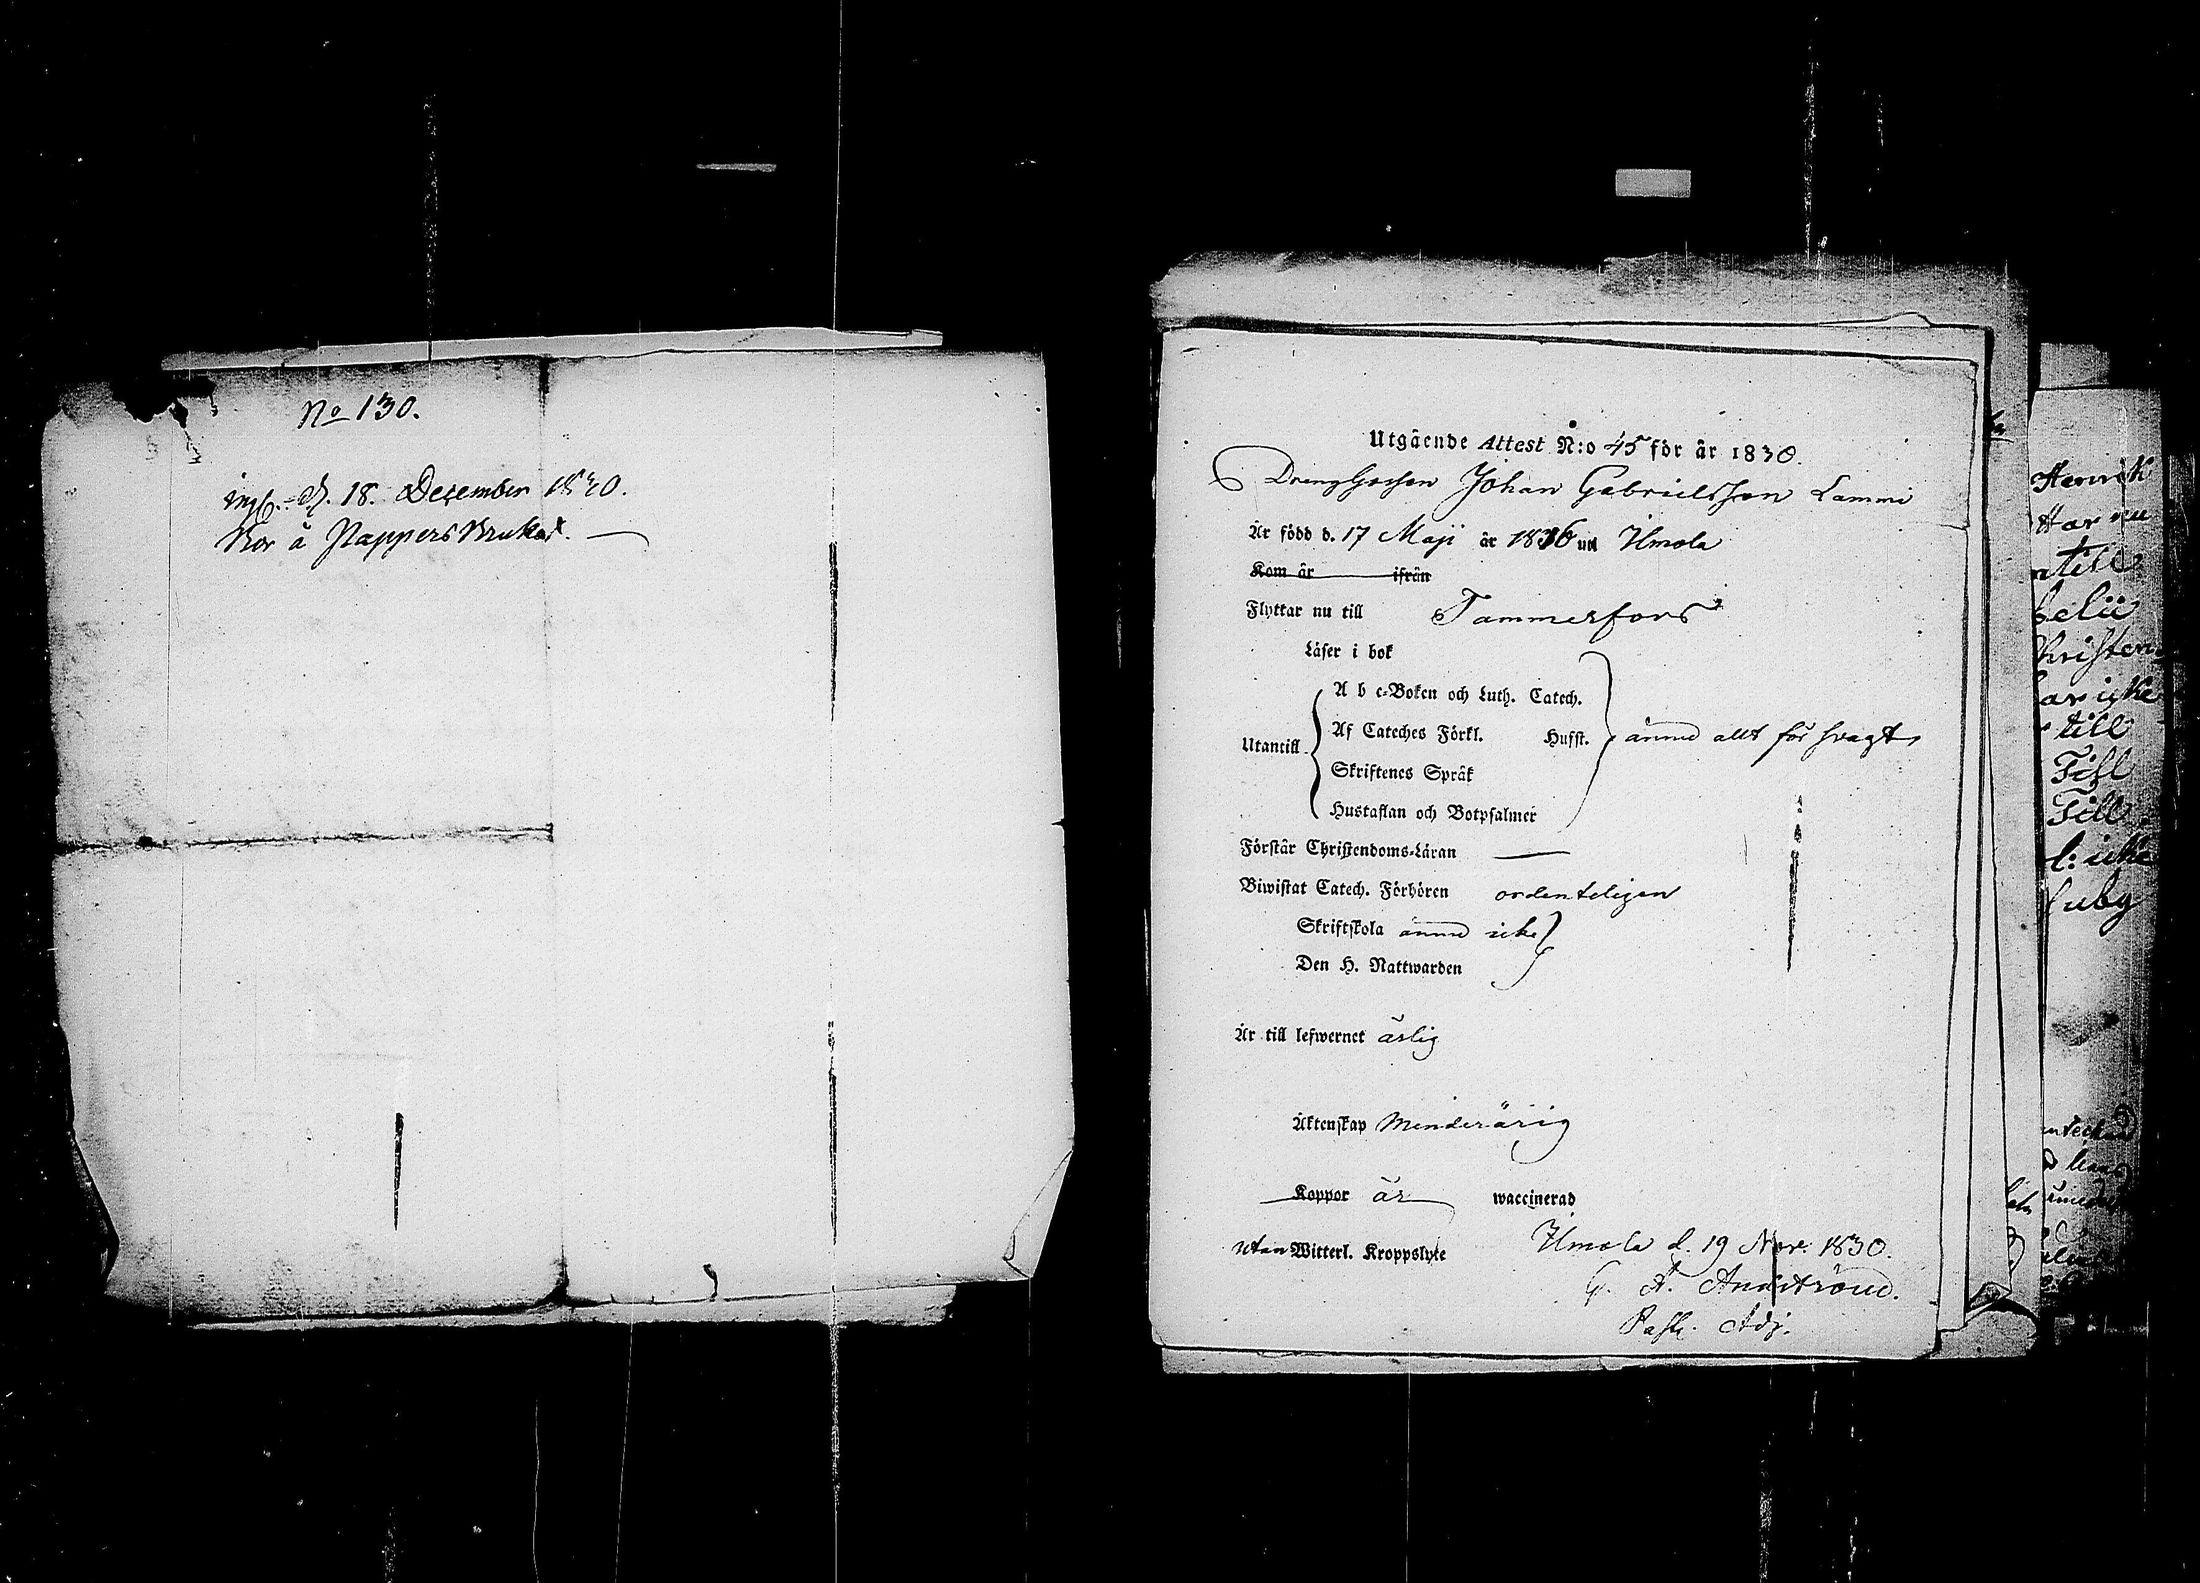 No 130.
inl. d. 18. Desember 1830.
Bor å Pappers Bruket.
Utgående Attest N:o 45 för år 1830.
DrengGossen Johan Gabrielsson Lammi
Är född d. 17 Maji år 1816 uti Ilmola
Kom år ifrån
Flyttar nu till Tammerfors
Läser i bok
A b c-Boken och Luth. Catech.
Utantill Af Cateches Förkl. Hufst. ännu allt för svagt
Skriftenes Språk
Hustaflan och Botpsalmer
Förstår Christendoms-Läran —
Biwistat Catech. Förhören ordenteligen
Skriftskola ännu icke
Den H. Nattwarden
Är till lefwernet ärlig
Äktenskap Minderårig
Koppor är waccinerad
utan Witterl. Kroppslyte Ilmola d. 19 Nov. 1830.
G. A.
Past. Adj.
Henrik
Har nu
till
Christen
till
Till
Till